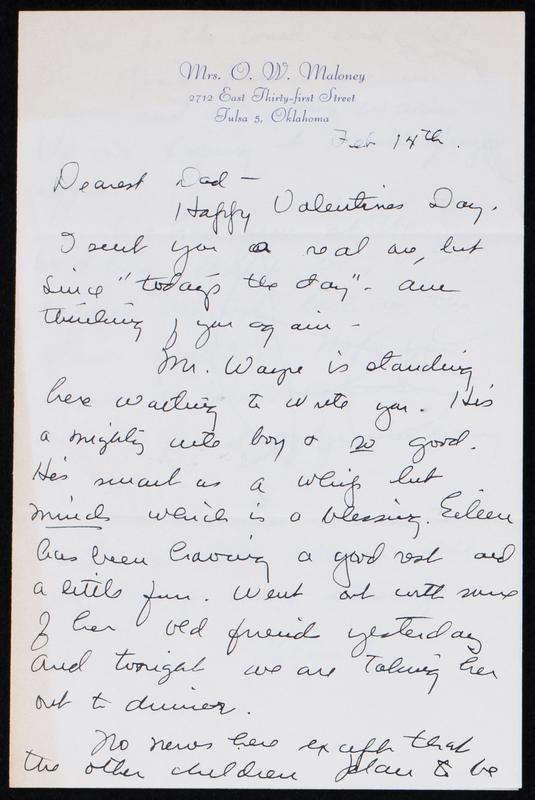 Mrs. O. W. Maloney
2712 East Thirty-first Street
Tulsa 5, Oklahoma
Feb 14th.
Dearest Dad —
Happy Valentines Day.
I sent you a real one, but
since "today's the day" - am
thinking of you again -
Mr. Wayne is standing
here waiting to write you. He's
a mighty cute boy & so good.
He's smart as a whip but
minds which is a blessing. Eileen
has been having a good rest and
a little fun. Went out with some
of her old friends yesterday
and tonight we are taking her
out to dinner.
No news here except that
the other children plan to be